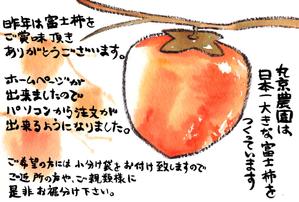 丸京農園は
日本一大きな富士柿を
つくっています
昨年は富士柿を
ご賞味頂き
ありがとうございます。
ホームページが
出来ましたので
パソコンから注文が
出来るようになりました。
ご希望の方には小分け袋をお付け致しますので
ご近所の声や、ご親類様に
是非お裾分け下さい。